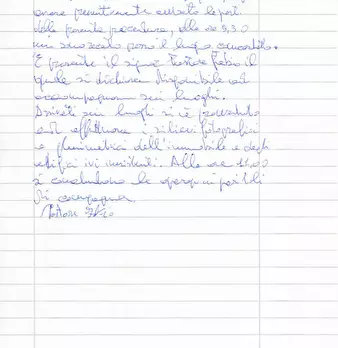 avere preventivamente avvisato le parti
della presente procedura, alle ore 9,30
mi sono recato presso il luogo
È presente il signor il
quale si dichiara disponibile ad
accompagnarmi sui luoghi.
Arrivati sui luoghi si è provveduto
ad effettuare i rilievi fotografici
e planimetrici dell'immobile e degli
edifici ivi insistenti. Alle ore 11.00
si concludono le operazioni peritali
di campagna